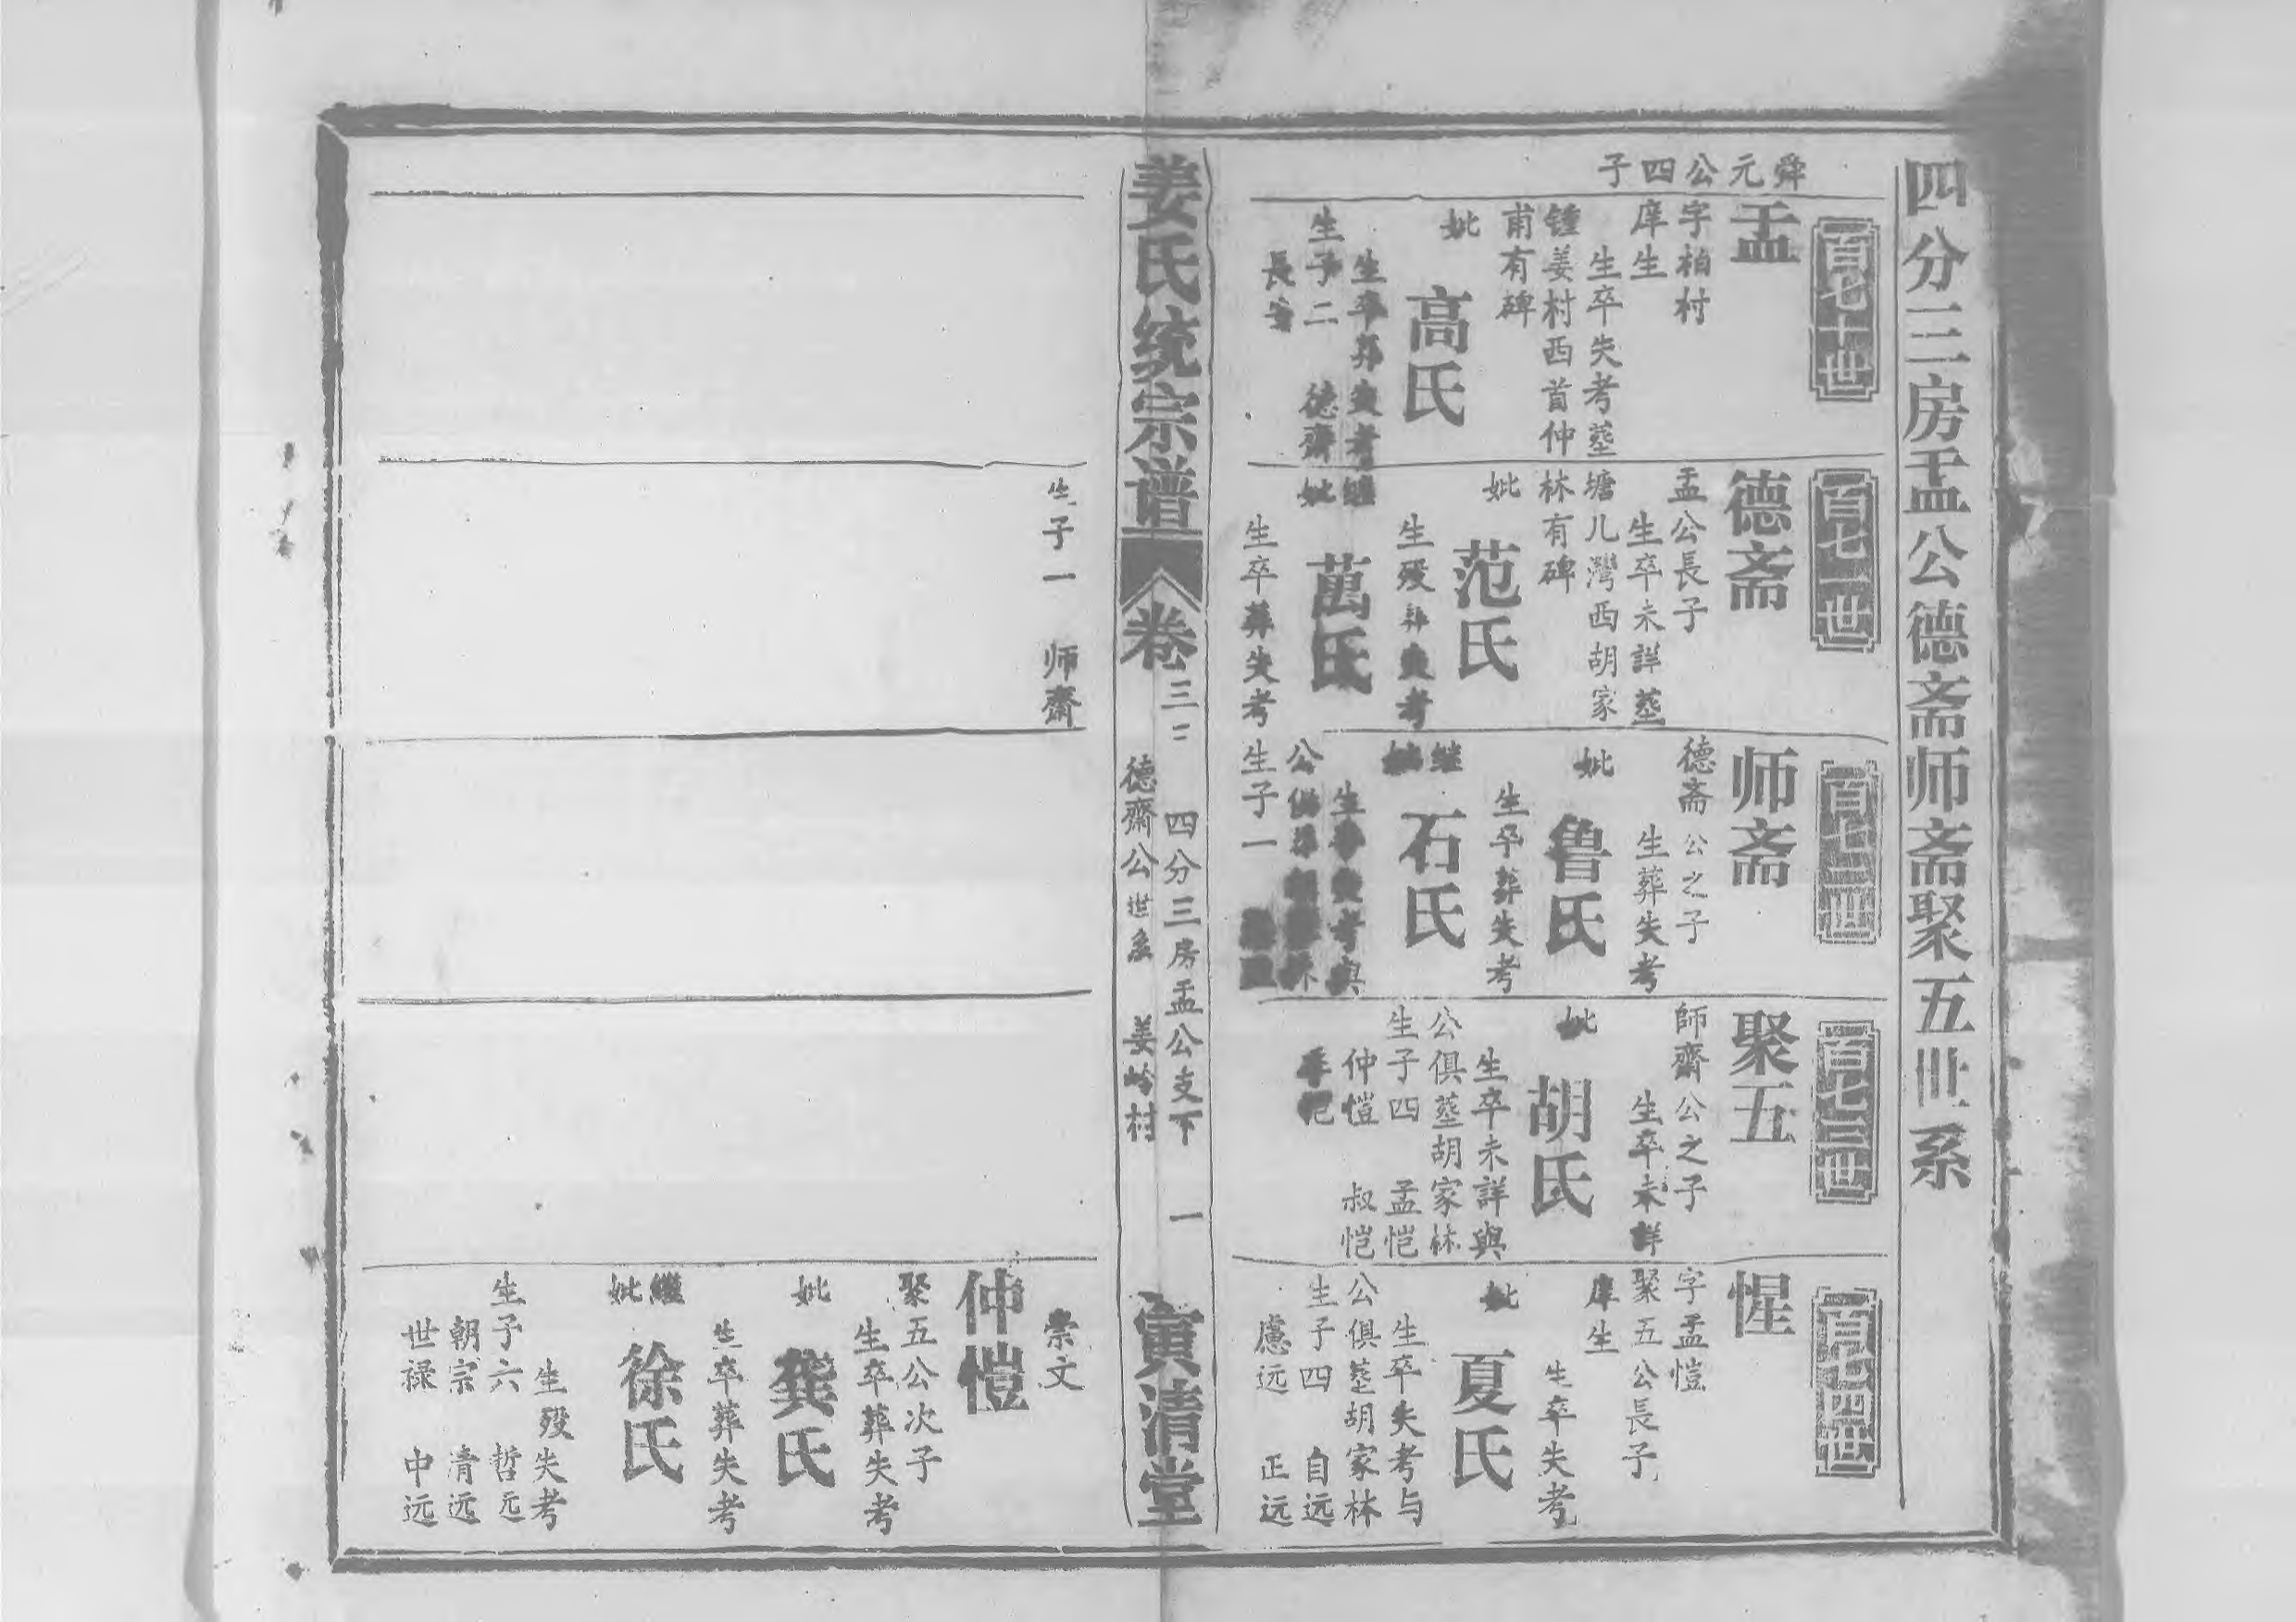 四分三房盂公德斋师斋聚五世系
舜元公四子
百七十世
盂
字柏村
庠生
生卒失考塟
锺姜村西首仲
甫有碑
妣
高氏
生卒葬失考
生子二 德齋
長
百七一世
德斋
盂公長子
生卒未詳塟
塘儿灣西胡家
林有碑
妣
范氏
生殁葬失考
继
妣
萬氏
生卒葬失考
百七二世
师斋
德斋公之子
生葬失考
妣
鲁氏
生卒葬失考
继
妣
石氏
生卒失考與
公俱葬胡家林
生子一
百七三世
聚五
師齋公之子
生卒未詳
妣
胡氏
生卒未詳與
公俱塟胡家林
生子四 孟恺
仲愷 叔恺
季恺
百七四世
惺
字孟愷
聚五公長子
庠生
生卒失考
妣
夏氏
生卒失考与
公俱塟胡家林
生子四 自远
慮远 正远
姜氏统宗谱
卷三
四分三房盂公支下 一
德齋公世系 姜岭村
寅清堂
生子一 师齋
崇文
仲愷
聚五公次子
生卒葬失考
妣
龚氏
生卒葬失考
繼
妣
徐氏
生殁失考
生子六 哲远
朝宗 清远
世禄 中远